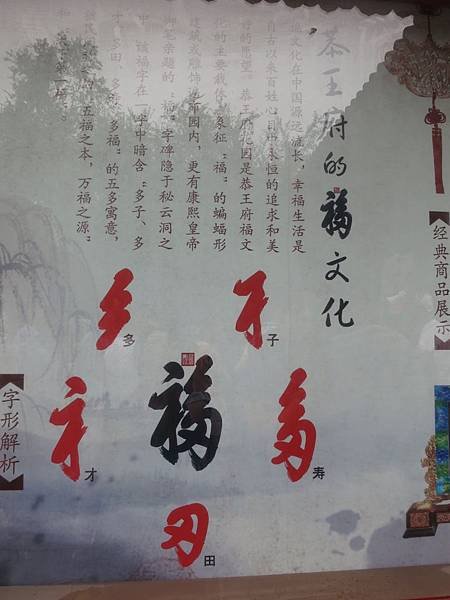 恭王府的福文化
福文化在中国源远流长，幸福生活是
自古以来百姓心目中永恒的追求和美
好的愿望。恭王府花园是恭王府福文
化的主要载体，象征“福”的蝙蝠形
建筑或雕饰遍布园内，更有康熙皇帝
御笔亲题的“福”字碑隐于秘云洞之
中，该福字在一字中暗含“多子、多
才、多田、多寿、多福”的五多寓意，
被民 “五福之本，万福之源”
和 第一福”。
经典商品展示
字形解析
多
子
福
才
寿
田